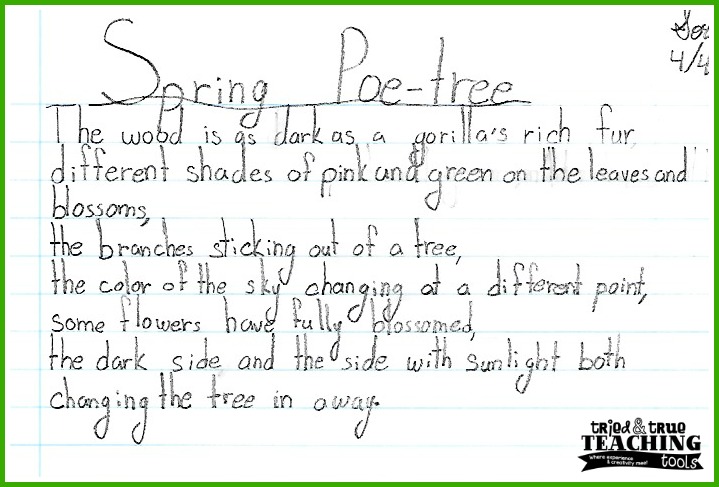 Spring Poe-tree
4/4
The wood is as dark as a gorilla's rich fur,
different shades of pink and green on the leaves and
blossoms,
the branches sticking out of a tree,
the color of the sky changing at a different point,
some flowers have fully blossomed,
the dark side and the side with sunlight both
changing the tree in a way.
tried & true
TEACHING
where experience
& creativity meet
tools